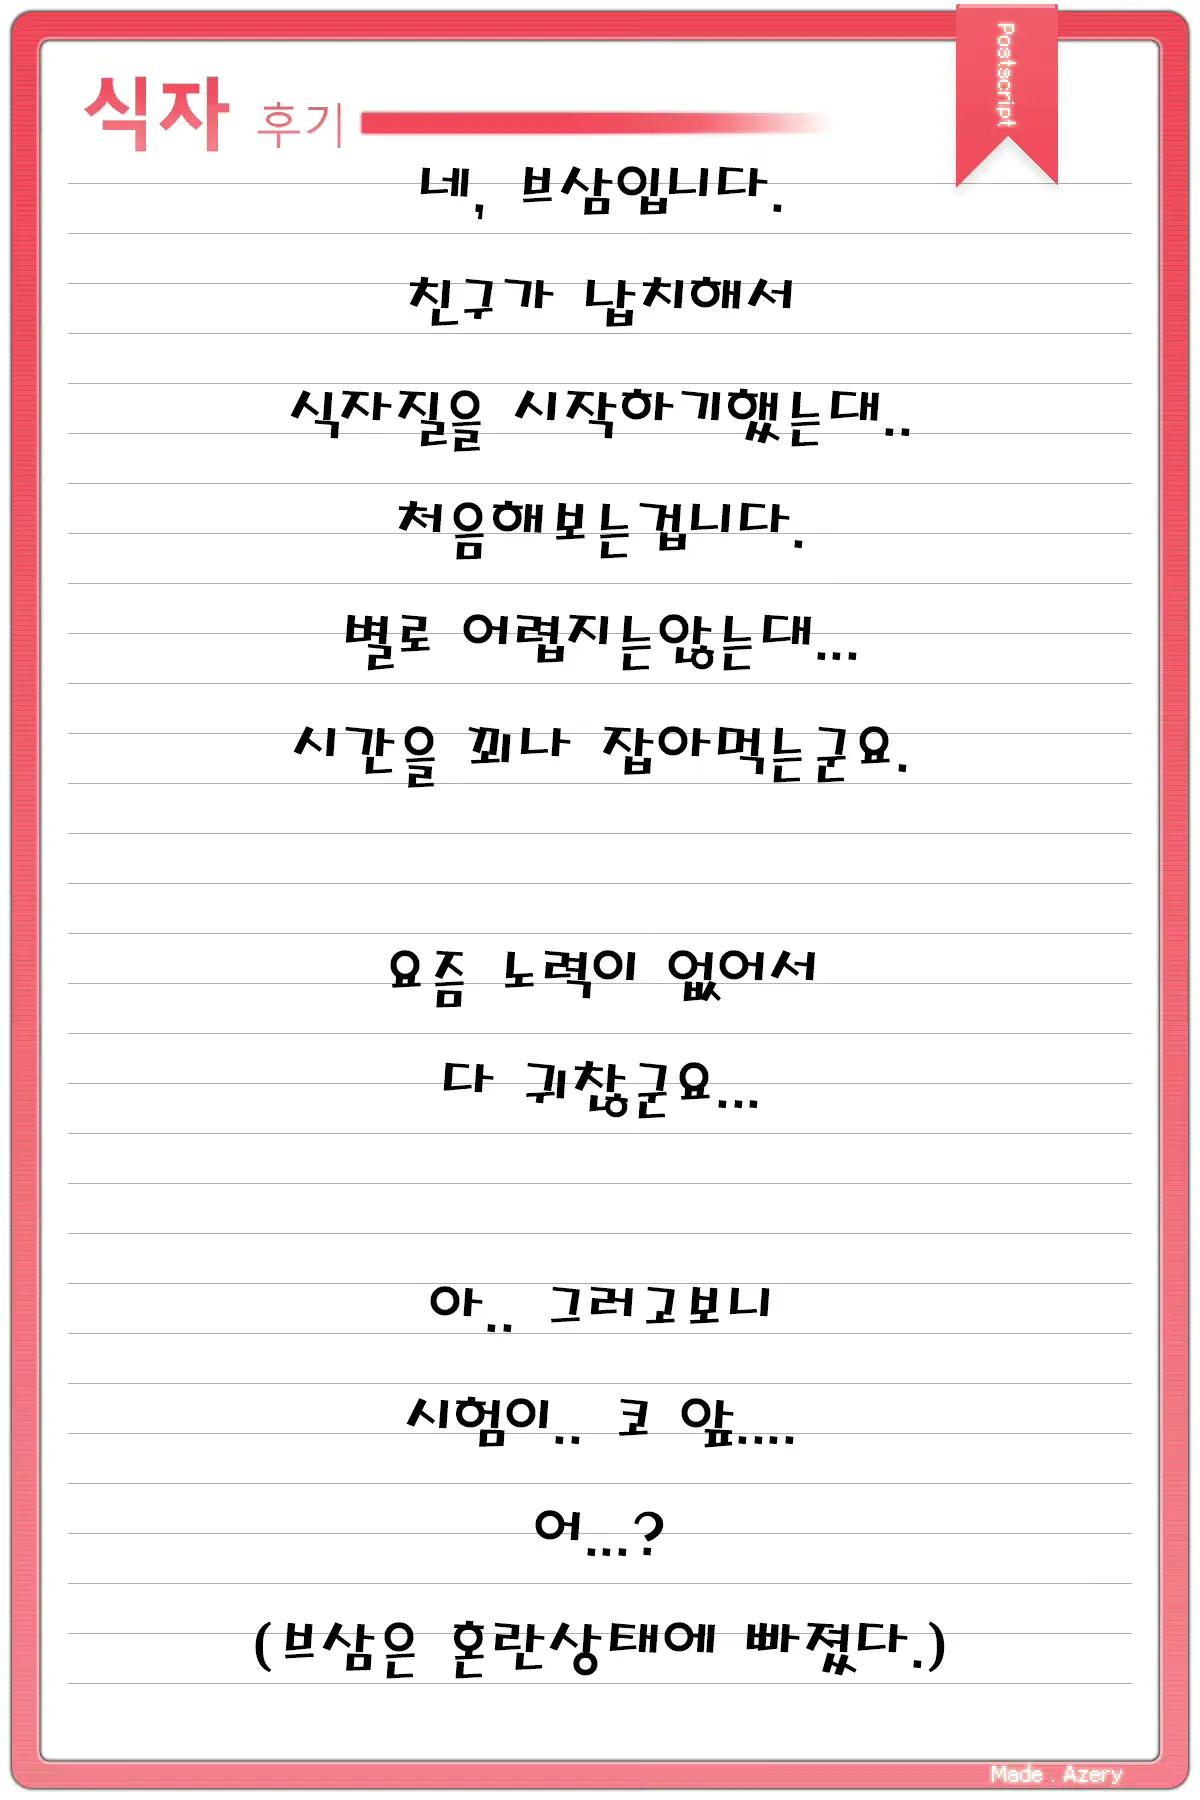 Postscript
식자 후기
네, 브삼입니다.
친구가 납치해서
식자질을 시작하기했는대..
처음해보는겁니다.
별로 어렵지는않는대...
시간을 꾀나 잡아먹는군요.
요즘 노력이 없어서
다 귀찮군요...
아.. 그러고보니
시험이.. 코 앞....
어...?
(브삼은 혼란상태에 빠졌다.)
Made . Azery